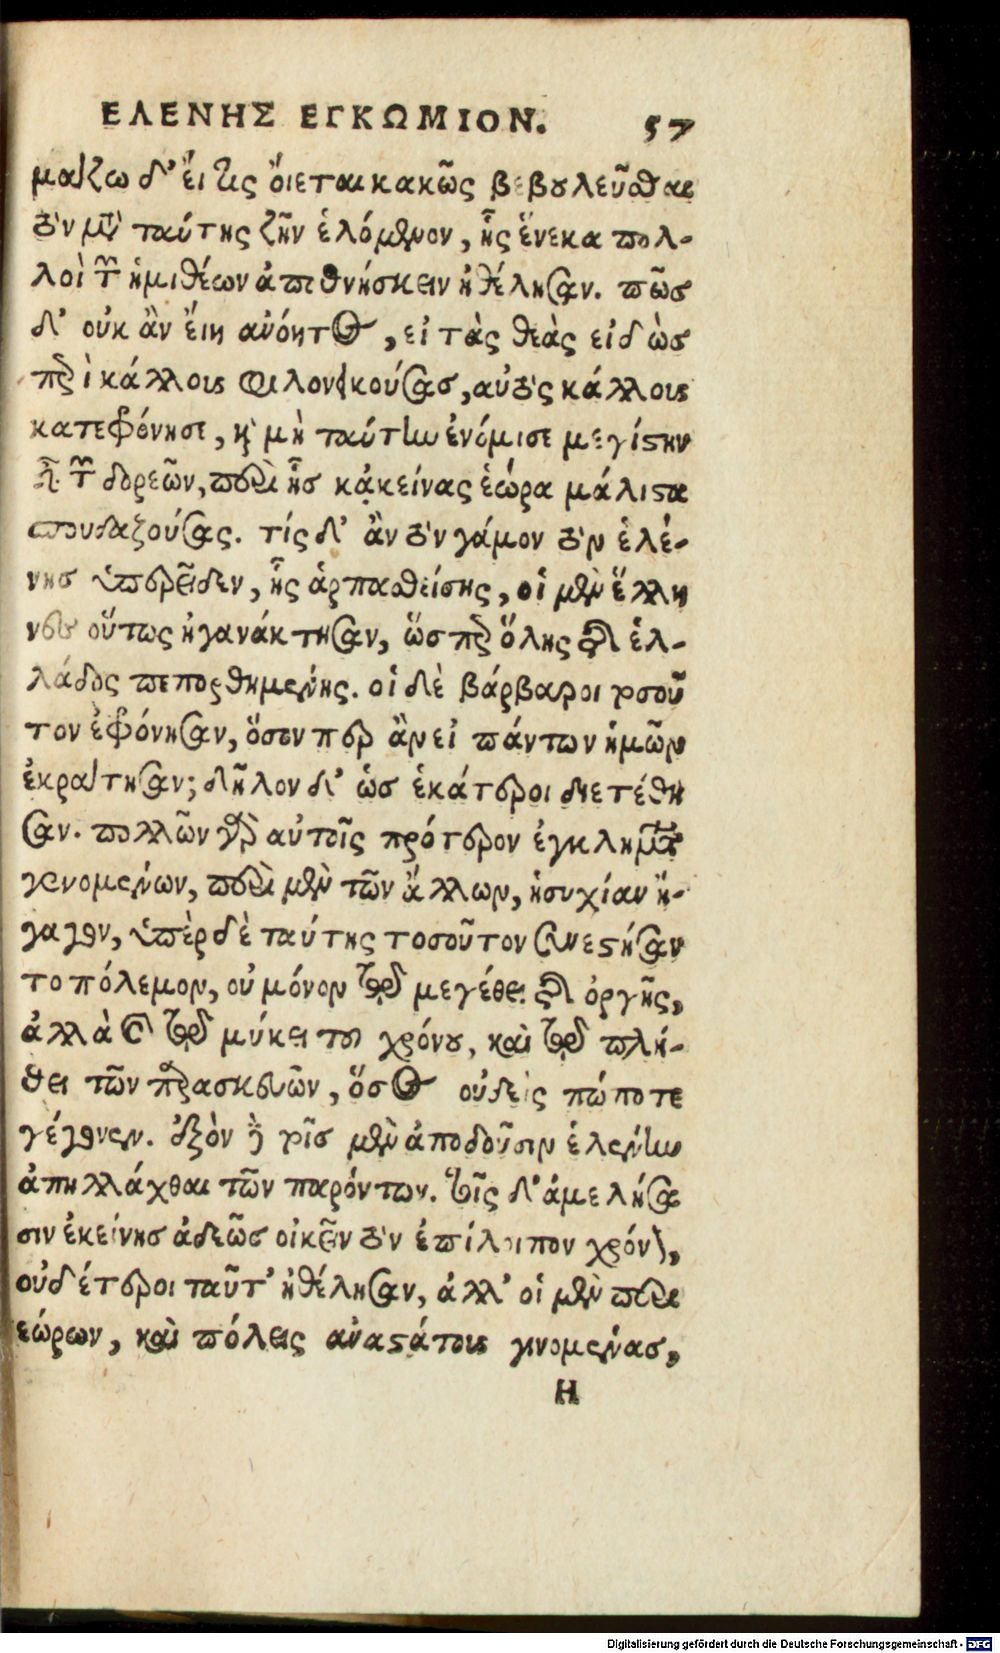 ΕΛΕΝΗΣ ΕΓΚΩΜΙΟΝ. 57
μάζω δ’ εἴ τις ὄιεται κακῶς βεβουλεῦσθαι
τὸν μετὰ ταύτης ζῆν ἑλόμενον, ἧς ἕνεκα πολ-
λοὶ τῶν ἡμιθέων ἀποθνήσκειν ἠθέλησαν. πῶς
δ’ οὐκ ἂν εἴη ανόητος, εἰ τὰς θεὰς εἰδὼς
περὶ κάλλους φιλονεικούσας, αὐτὸς κάλλους
κατεφρόνησε, καὶ μὴ ταύτην ἐνόμισε μεγίστην
εἶναι τῶν δωρεῶν, περὶ ἧς κἀκείνας ἑώρα μάλιστα
σπουδαζούσας. τίς δ’ ἂν τὸν γάμον τὸν ἑλέ-
νης ὑπερεῖδεν, ἧς ἁρπασθείσης, οἱ μὲν ἕλλη
νες οὕτως ἠγανάκτησαν, ὥσπερ ὅλης τῆς ἑλ-
λάδος πεπορθημένης. οἱ δὲ βάρβαροι τοσοῦ
τον ἐφρόνησαν, ὅσον περ ἂν εἰ πάντων ἡμῶν
ἐκράτησαν; δῆλον δ’ ὡς ἑκάτεροι διετέθη
σαν. πολλῶν γὰρ αὐτοῖς πρότερον ἐγκλημάτων
γενομένων, περὶ μὲν τῶν ἄλλων, ἡσυχίαν ἤ-
γαγον, ὑπὲρ δὲ ταύτης τοσοῦτον συνεστήσαν
το πόλεμον, οὐ μόνον τῷ μεγέθει τῆς ὀργῆς,
ἀλλὰ καὶ τῷ μήκει τοῦ χρόνου, καὶ τῷ πλή-
θει τῶν παρασκευῶν, ὅσος οὐδεὶς πώποτε
γέγονεν. ἐξὸν δὲ τοῖς μὲν ἀποδοῦσιν ἑλένην
ἀπηλλάχθαι τῶν παρόντων. τοῖς δ’ ἀμελήσα
σιν ἐκείνης ἀδεῶς οἰκεῖν τὸν ἐπίλοιπον χρόνον,
οὐδέτεροι ταῦτ’ ἠθέλησαν, ἀλλ’ οἱ μὲν περι
εώρων, καὶ πόλεις αναστάτους γινομένας,
Η
Digitalisierung gefördert durch die Deutsche Forschungsgemeinschaft - DFG